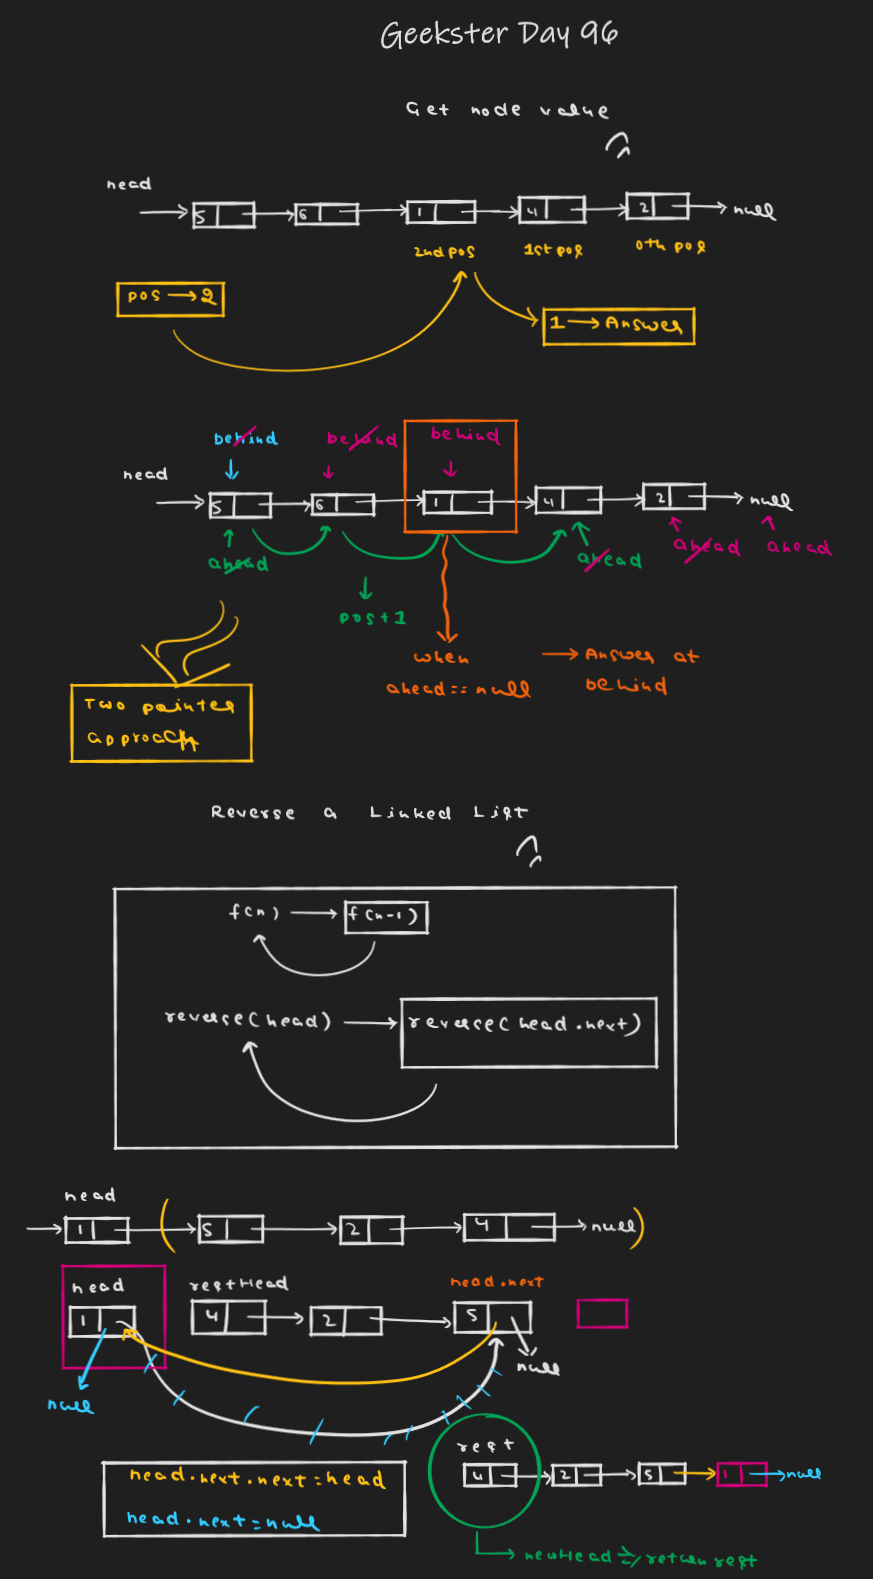 Geekster Day 96
Get node value
head
5 6 1 4 2 null
2nd pos 1st pos 0th pos
pos → 2
1 → Answer
behind behind behind
head
5 6 1 4 2 null
ahead ahead ahead ahead
pos + 1
when → Answer at
ahead == null behind
Two pointer
approach
Reverse a Linked List
f(n) → f(n-1)
reverse(head) → reverse(head.next)
head
1 ( 5 2 4 null )
head restHead head.next
1 4 2 5
null
null
rest
4 2 5 1 null
head.next.next = head
head.next = null
newHead => return rest